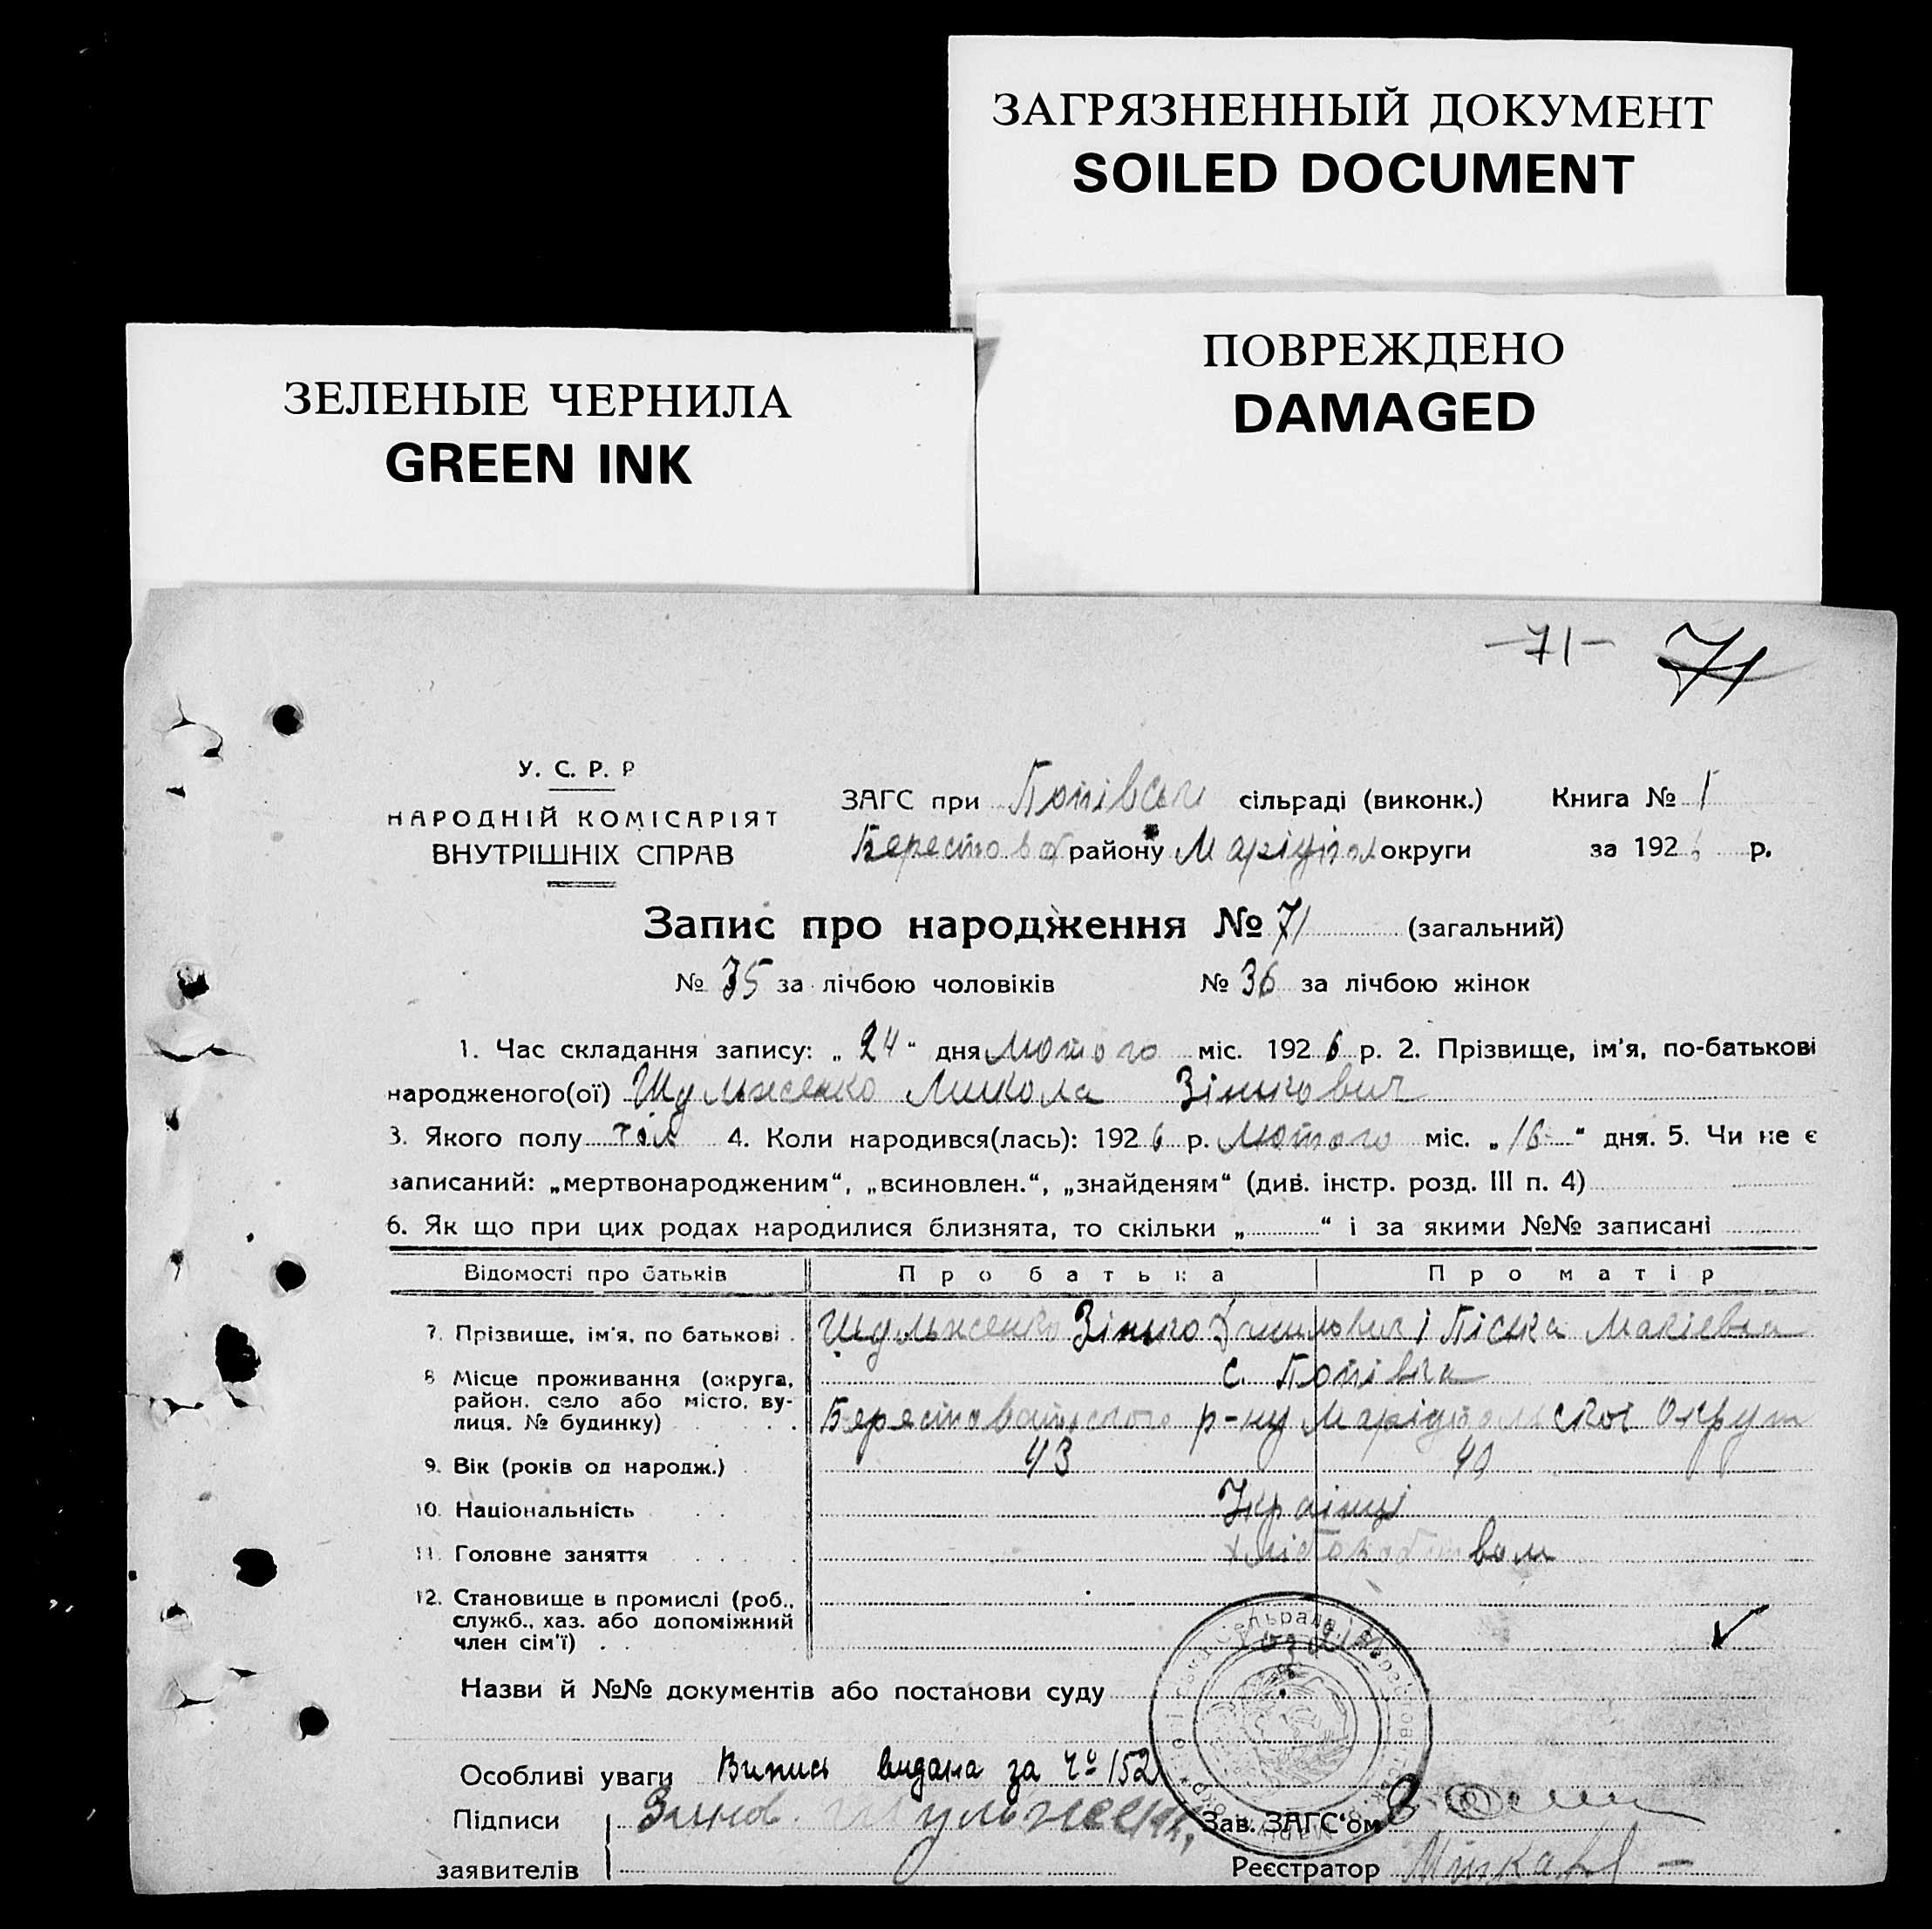 ЗАГРЯЗНЕННЫЙ ДОКУМЕНТ
SOILED DOCUMENT
ПОВРЕЖДЕНО
DAMAGED
ЗЕЛЕНЫЕ ЧЕРНИЛА
GREEN INK
-71- 71
У. С. Р. Р
НАРОДНІЙ КОМІСАРІЯТ
ВНУТРІШНІХ СПРАВ
ЗАГС при сільраді (виконк.) Книга № 1
Берестов району Маріупол округи за 1926 р.
Запис про народження № 71 (загальний)
№ 35 за лічбою чоловіків № 36 за лічбою жінок
1. Час складання запису: „ 24 “ дня Лютого міс. 1926 р. 2. Прізвище, ім'я, по-батькові
народженого(ої) Шульженко Микола Зінькович
3. Якого полу чол 4. Коли народився(лась): 1926 р. Лютого міс. „ 16 “ дня. 5. Чи не є
записаний: „мертвонародженим“, „всиновлен.“, „знайденям“ (див. інстр. розд. III п. 4)
6. Як що при цих родах народилися близнята, то скільки „ “ і за якими №№ записані
Відомості про батьків Про батька Про матір
7. Прізвище, ім'я, по батькові Шульженко Зінько Данилович і
8 Місце проживання (округа, с. Попівка
район, село або місто, ву-
лиця, № будинку) Берестоватського р-ну Маріупольської Округи
9. Вік (років од народж.) 43 40
10. Національність Українці
11. Головне заняття хліборобством
12. Становище в промислі (роб.,
служб., хаз. або допоміжний
член сім'ї)
Назви й №№ документів або постанови суду
Особливі уваги Випись видана за № 152
Підписи Зинов. Шульженк Зав. ЗАГС'ом
заявителів Реєстратор